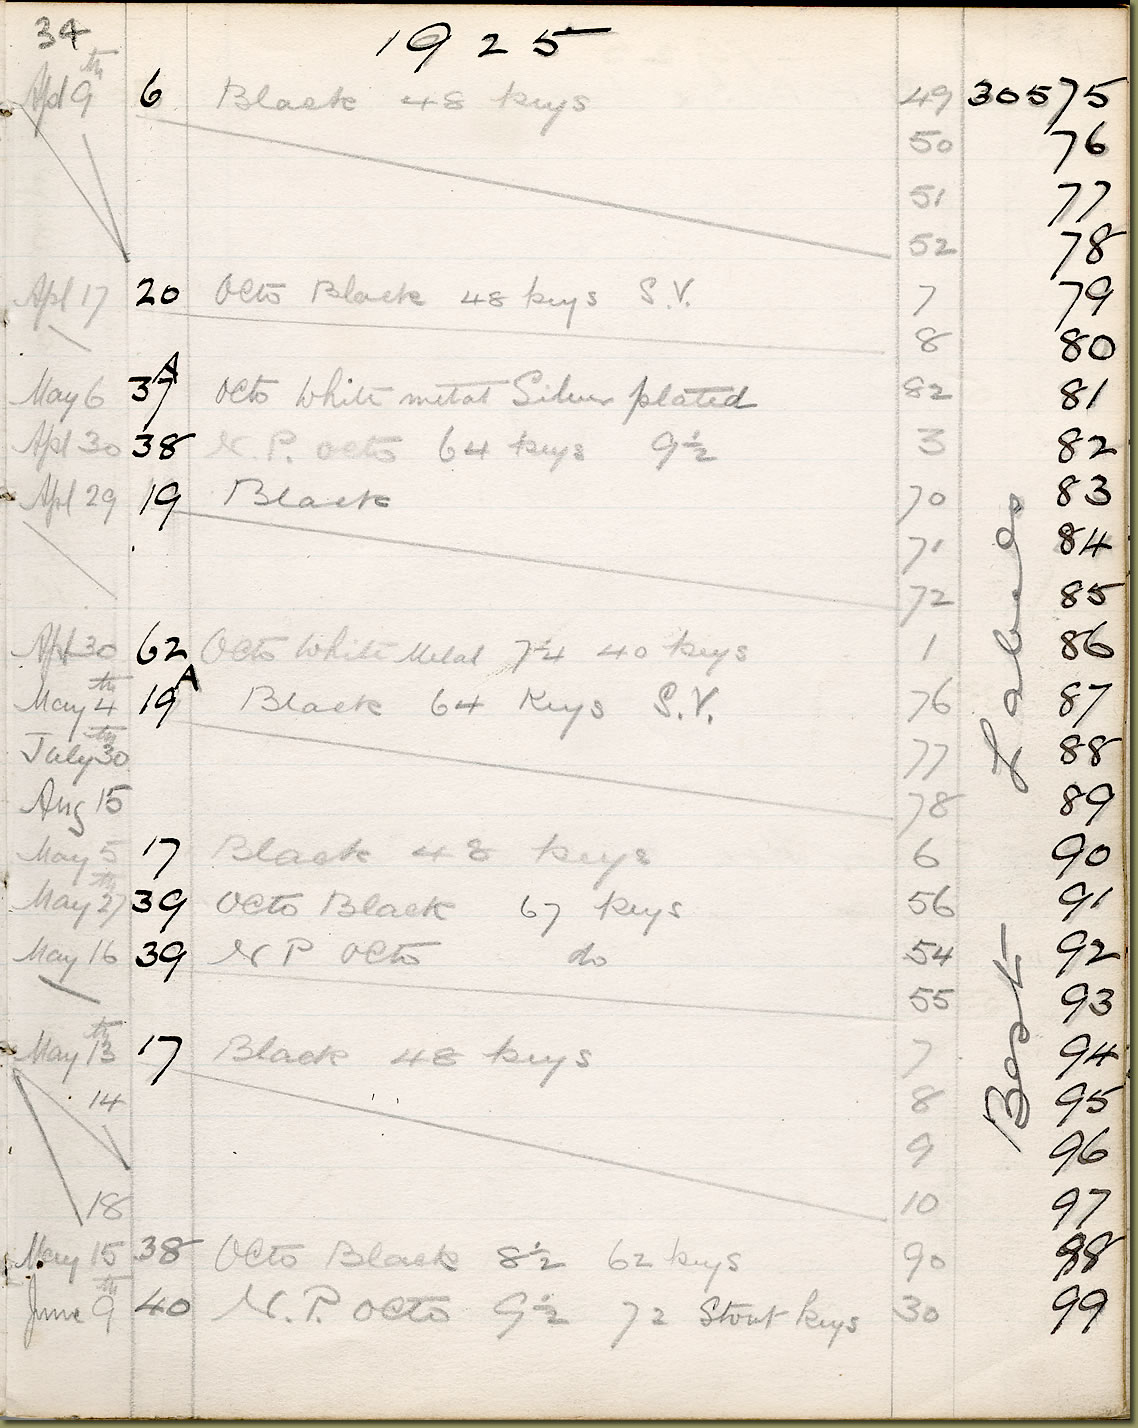 34 1925
Apl 9th 6 Black 48 keys 49 30575
50 76
51 77
52 78
Apl 17 20 Octo Black 48 keys S.V. 7 79
8 80
May 6 37A Octo White metal Silver plated 82 81
Apl 30 38 N.P. Octo 64 keys 9½ 3 82
Apl 29 19 Black 70 83
71 84
72 85
Apl 30 62 Octo White Metal 7¼ 40 keys 1 86
May 4th 19A Black 64 Keys S.V. 76 87
July 30th 77 88
Aug 15 78 89
May 5 17 Black 48 keys 6 90
May 27th 39 Octo Black 67 keys 56 91
May 16 39 N P Octo do 54 92
55 93
May 13th 17 Black 48 keys 7 94
14 8 95
9 96
18 10 97
May 15 38 Octo Black 8½ 62 keys 90 98
June 9th 40 N.P. Octo 9½ 72 Stout keys 30 99
Best Labels